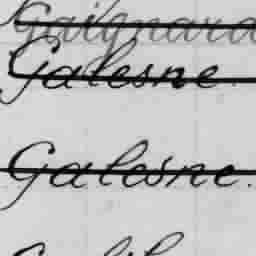 Gaignard
Galesne
Galesne.